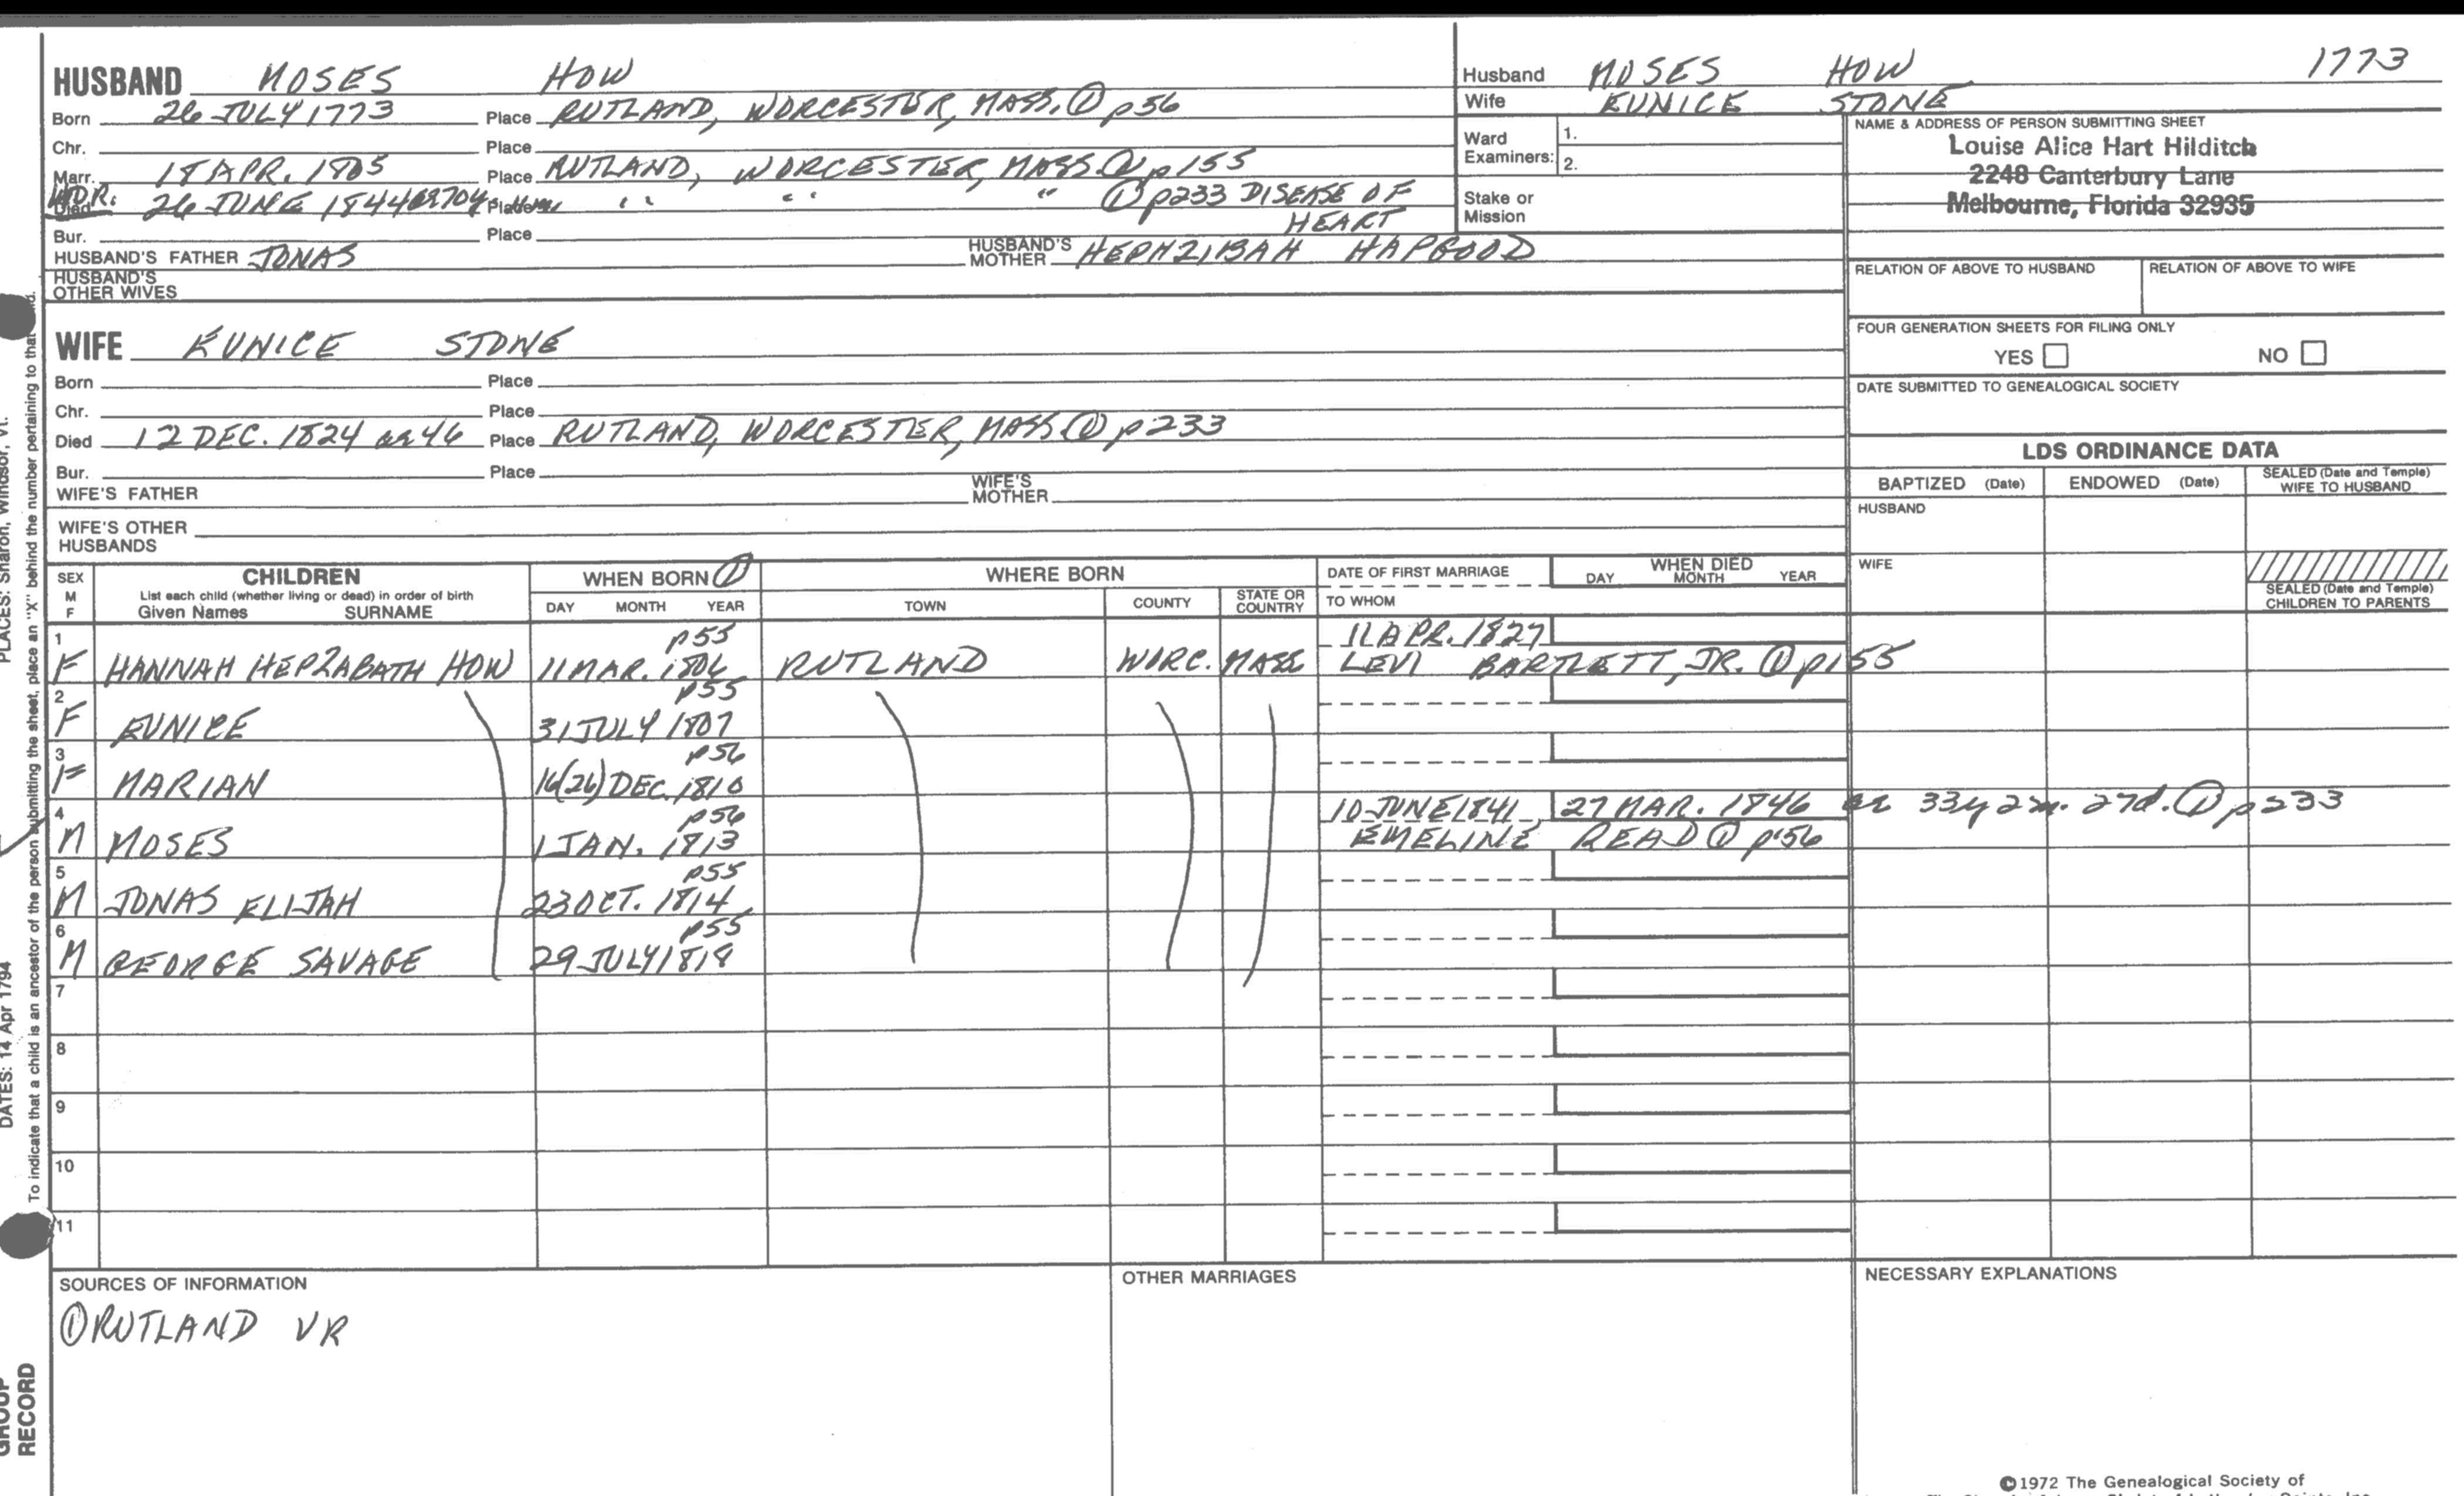 HUSBAND MOSES HOW
Born 26 JULY 1773 Place RUTLAND, WORCESTER, MASS. ① p56
Chr. Place
Marr. 18 APR. 1805 Place RUTLAND, WORCESTER, MASS ① p155
WDR. Died 26 JUNE 1844 Place " " " ① p233 DISEASE OF
HEART
Bur. Place
HUSBAND'S FATHER JONAS HUSBAND'S MOTHER HEPHZIBAH HAPGOOD
HUSBAND'S
OTHER WIVES
WIFE EUNICE STONE
Born Place
Chr. Place
Died 12 DEC. 1824 ae 46 Place RUTLAND, WORCESTER, MASS ① p233
Bur. Place
WIFE'S FATHER WIFE'S MOTHER
WIFE'S OTHER
HUSBANDS
Husband MOSES HOW 1773
Wife EUNICE STONE
Ward
Examiners: 1.
2.
Stake or
Mission
NAME & ADDRESS OF PERSON SUBMITTING SHEET
Louise Alice Hart Hilditch
2248 Canterbury Lane
Melbourne, Florida 32935
RELATION OF ABOVE TO HUSBAND RELATION OF ABOVE TO WIFE
FOUR GENERATION SHEETS FOR FILING ONLY
YES NO
DATE SUBMITTED TO GENEALOGICAL SOCIETY
LDS ORDINANCE DATA
BAPTIZED (Date) ENDOWED (Date) SEALED (Date and Temple)
WIFE TO HUSBAND
HUSBAND
WIFE
SEALED (Date and Temple)
CHILDREN TO PARENTS
SEX
M
F
CHILDREN
List each child (whether living or dead) in order of birth
Given Names SURNAME
WHEN BORN ①
DAY MONTH YEAR
WHERE BORN
TOWN COUNTY STATE OR COUNTRY
DATE OF FIRST MARRIAGE
TO WHOM
WHEN DIED
DAY MONTH YEAR
1 p55 11 APR. 1827
F HANNAH HEPZABATH HOW 11 MAR. 1806 RUTLAND WORC. MASS LEVI BARTLETT, JR. ① p155
2 p55
F EUNICE 31 JULY 1807
3 p56
F MARIAN 16(26) DEC. 1810
4 p56 10 JUNE 1841 27 MAR. 1846 ae 33y 2m. 27d. ① p233
M MOSES 1 JAN. 1813 EMELINE READ ① p156
5 p55
M JONAS ELIJAH 23 OCT. 1814
6 p55
M GEORGE SAVAGE 29 JULY 1818
7
8
9
10
11
SOURCES OF INFORMATION
① RUTLAND VR
OTHER MARRIAGES
NECESSARY EXPLANATIONS
©1972 The Genealogical Society of
PLACES: Sharon, Windsor, Vt.
DATES: 14 Apr 1794
To indicate that a child is an ancestor of the person submitting the sheet, place an "X" behind the number pertaining to that
GROUP
RECORD